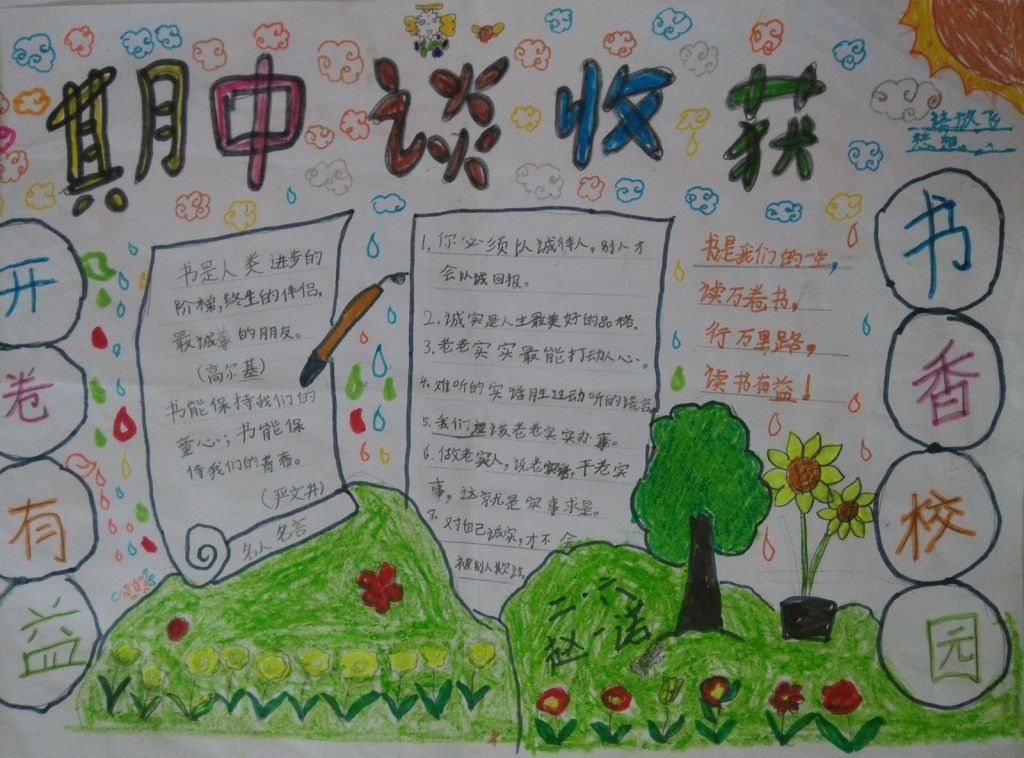 期中谈收获
请放飞
梦想
开卷有益
书是人类进步的
阶梯,终生的伴侣,
最诚挚的朋友。
(高尔基)
书能保持我们的
童心;书能保
持我们的青春。
(严文井)
名人名言
1. 你必须以诚待人,别人才
会以诚回报。
2. 诚实是人生最美好的品格。
3. 老老实实最能打动人心。
4. 难听的实话胜过动听的谎言
5. 我们应该老老实实办事。
6. 做老实人,说老实话,干老实
事,这就是实事求是。
7. 对自己诚实,才不会
被别人欺
书是我们的一生,
读万卷书,
行万里路,
读书有益!
书香校园
二.六
赵一诺